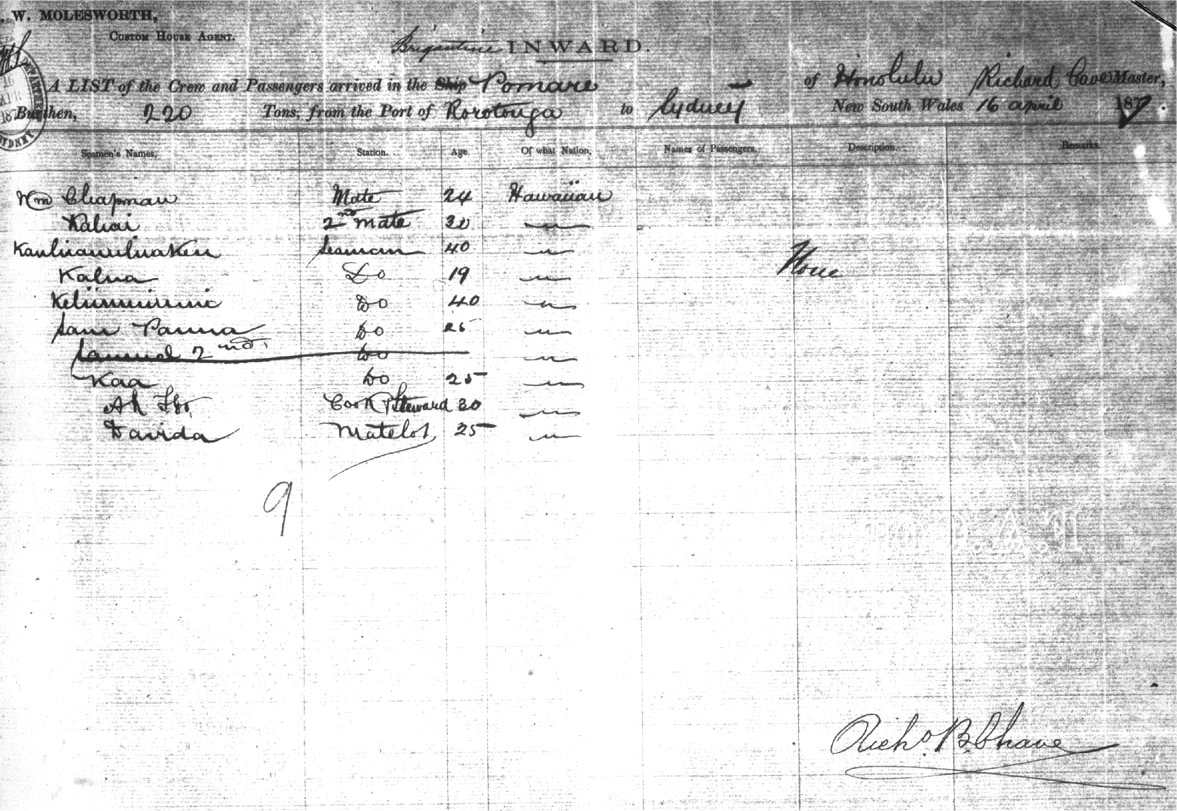 . W. MOLESWORTH,
CUSTOM HOUSE AGENT.
Brigantine INWARD.
A LIST of the Crew and Passengers arrived in the Ship Pomare of Honolulu Richard Cave Master,
Burthen, 220 Tons, from the Port of Rorotonga to Sydney New South Wales 16 april 187
Seamen's Names, Station. Age Of what Nation, Names of Passengers. Description. Remarks.
Wm Chapman Mate 24 Hawaiian
Kahai 2nd Mate 30 "
Seaman 40 "
Kalua Do 19 "
Do 40 "
Sam Panna Do 25 "
Samuel 2nd. Do "
Kaa Do 25 "
Ah Cook & Steward 30 "
Davida Matelot 25 "
None
9
Richd. B. Chave